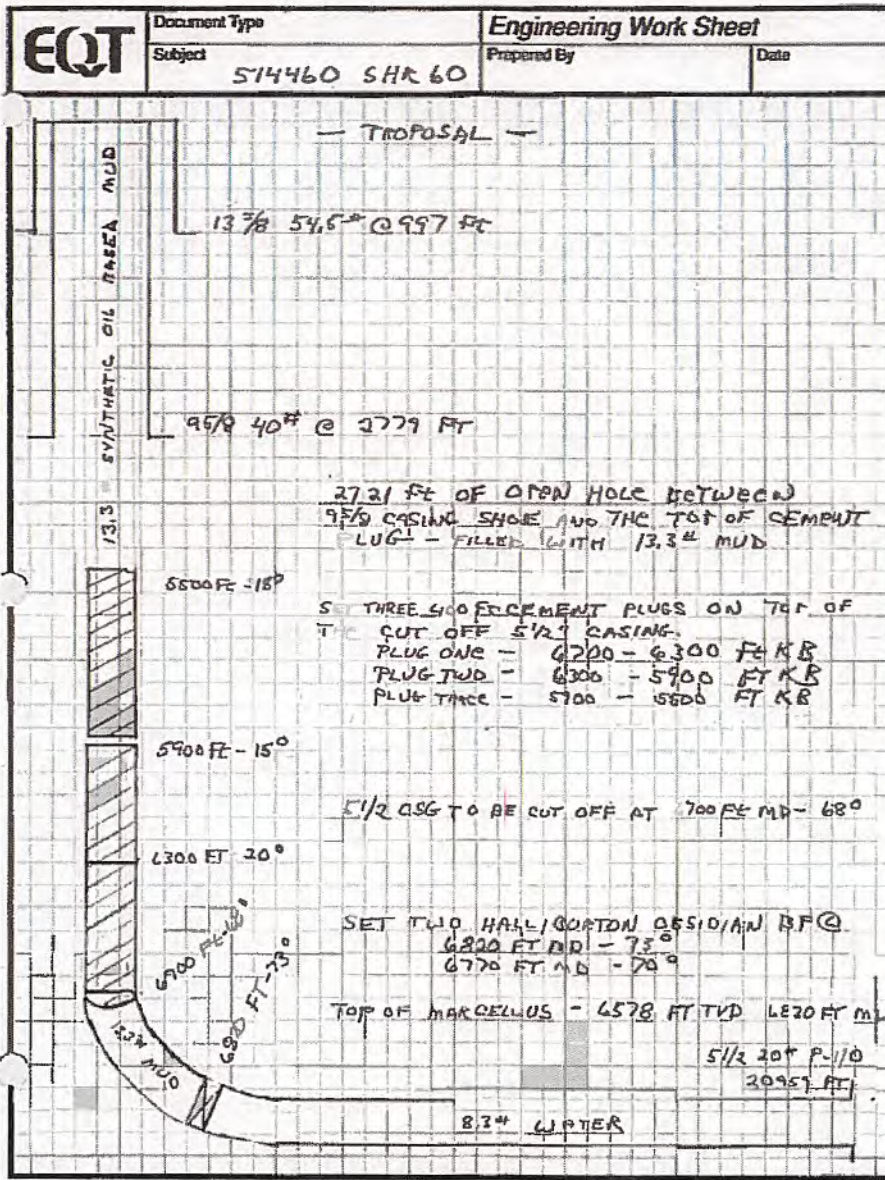 EQT
Document Type
Engineering Work Sheet
Subject
514460 SHR 60
Prepared By
Date
— PROPOSAL —
13.3 # SYNTHATIC OIL BASED MUD
13 3/8 54.5# @ 997 Ft
9 5/8 40# @ 2779 FT
2721 Ft OF OPEN HOLE BETWEEN
9 5/8 CASING SHOE AND THE TOP OF CEMENT
PLUG! - FILLED WITH 13.3# MUD
5500 Ft - 18°
SET THREE 400 FT CEMENT PLUGS ON TOP OF
THE CUT OFF 5 1/2" CASING.
PLUG ONE - 6700 - 6300 Ft KB
PLUG TWO - 6300 - 5900 FT KB
PLUG THREE - 5900 - 5500 FT KB
5900 Ft - 15°
5 1/2 CSG TO BE CUT OFF AT 6700 Ft MD - 68°
6300 FT 20°
SET TWO HALLIBURTON OBSIDIAN BP @
6820 FT MD - 73°
6770 FT MD - 70°
6700 Ft - 68°
6820 FT - 73°
TOP OF MARCELLUS - 6578 FT TVD 6820 FT M
13.3# MUD
5 1/2 20# P-110
20959 FT
8.3# WATER